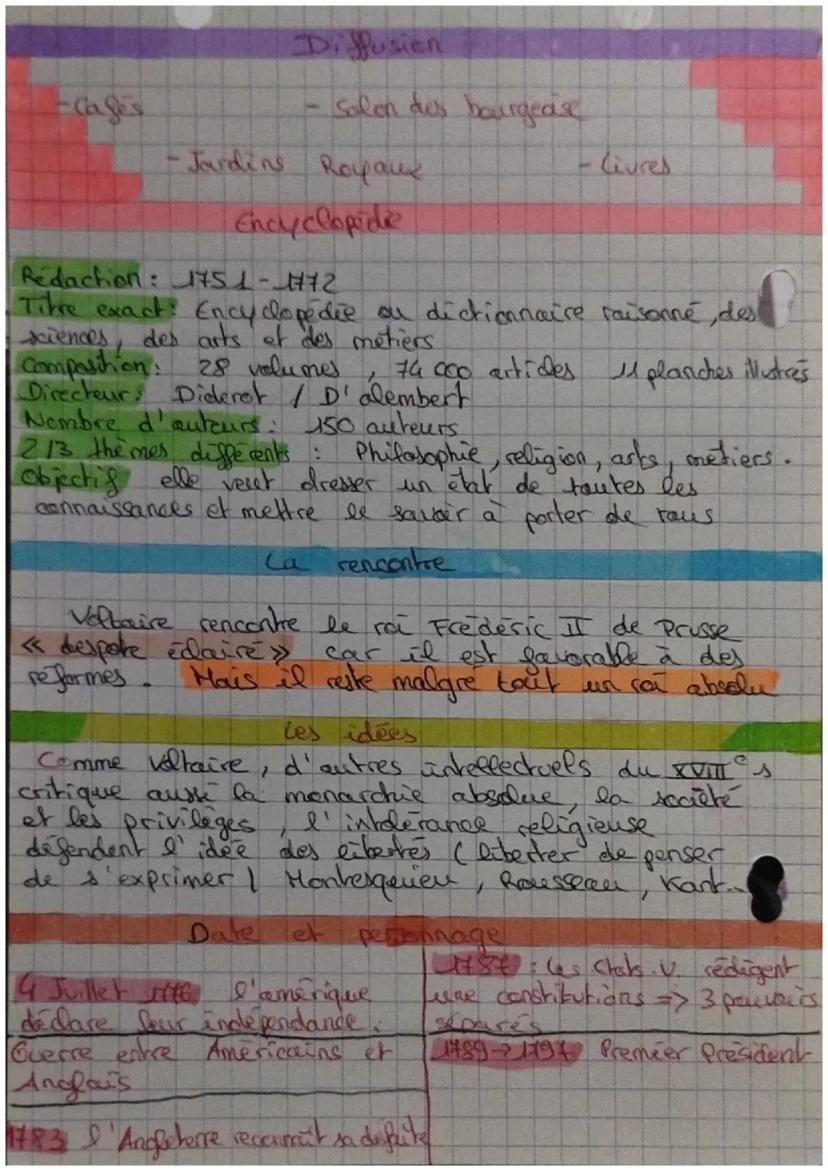 Diffusion
- Cafés - Salon des bourgeoise
- Jardins Royaux - Livres
Encyclopédie
Rédaction : 1751-1772
Titre exact : Encyclopédie ou dictionnaire raisonné, des
sciences, des arts et des métiers
Composition : 28 volumes, 74 000 articles 11 planches illustrés
Directeur : Diderot / D'alembert
Nombre d'auteurs : 150 auteurs
213 thèmes différents : Philosophie, religion, arts, métiers.
Objectif elle veut dresser un état de toutes les
connaissances et mettre le savoir à porter de tous
La rencontre
Voltaire rencontre le roi Frédéric II de Prusse
« despote éclairé » car il est favorable à des
réformes. Mais il reste malgré tout un roi absolu
Les idées
Comme Voltaire, d'autres intellectuels du XVIIIe s
critique aussi la monarchie absolue, la société
et les privilèges, l'intolérance religieuse
défendent l'idée des libertés (libertér de penser
de s'exprimer) Montesquieu, Rousseau, Kant...
Date et personnage
4 Juillet 1776 l'amérique
déclare leur indépendance.
Guerre entre Américains et
Anglais
1783 l'Angleterre reconnaît sa défaite
1787 : Les états. U. rédigent
une constitutions => 3 pouvoirs
séparés
1789->1797 Premier Président